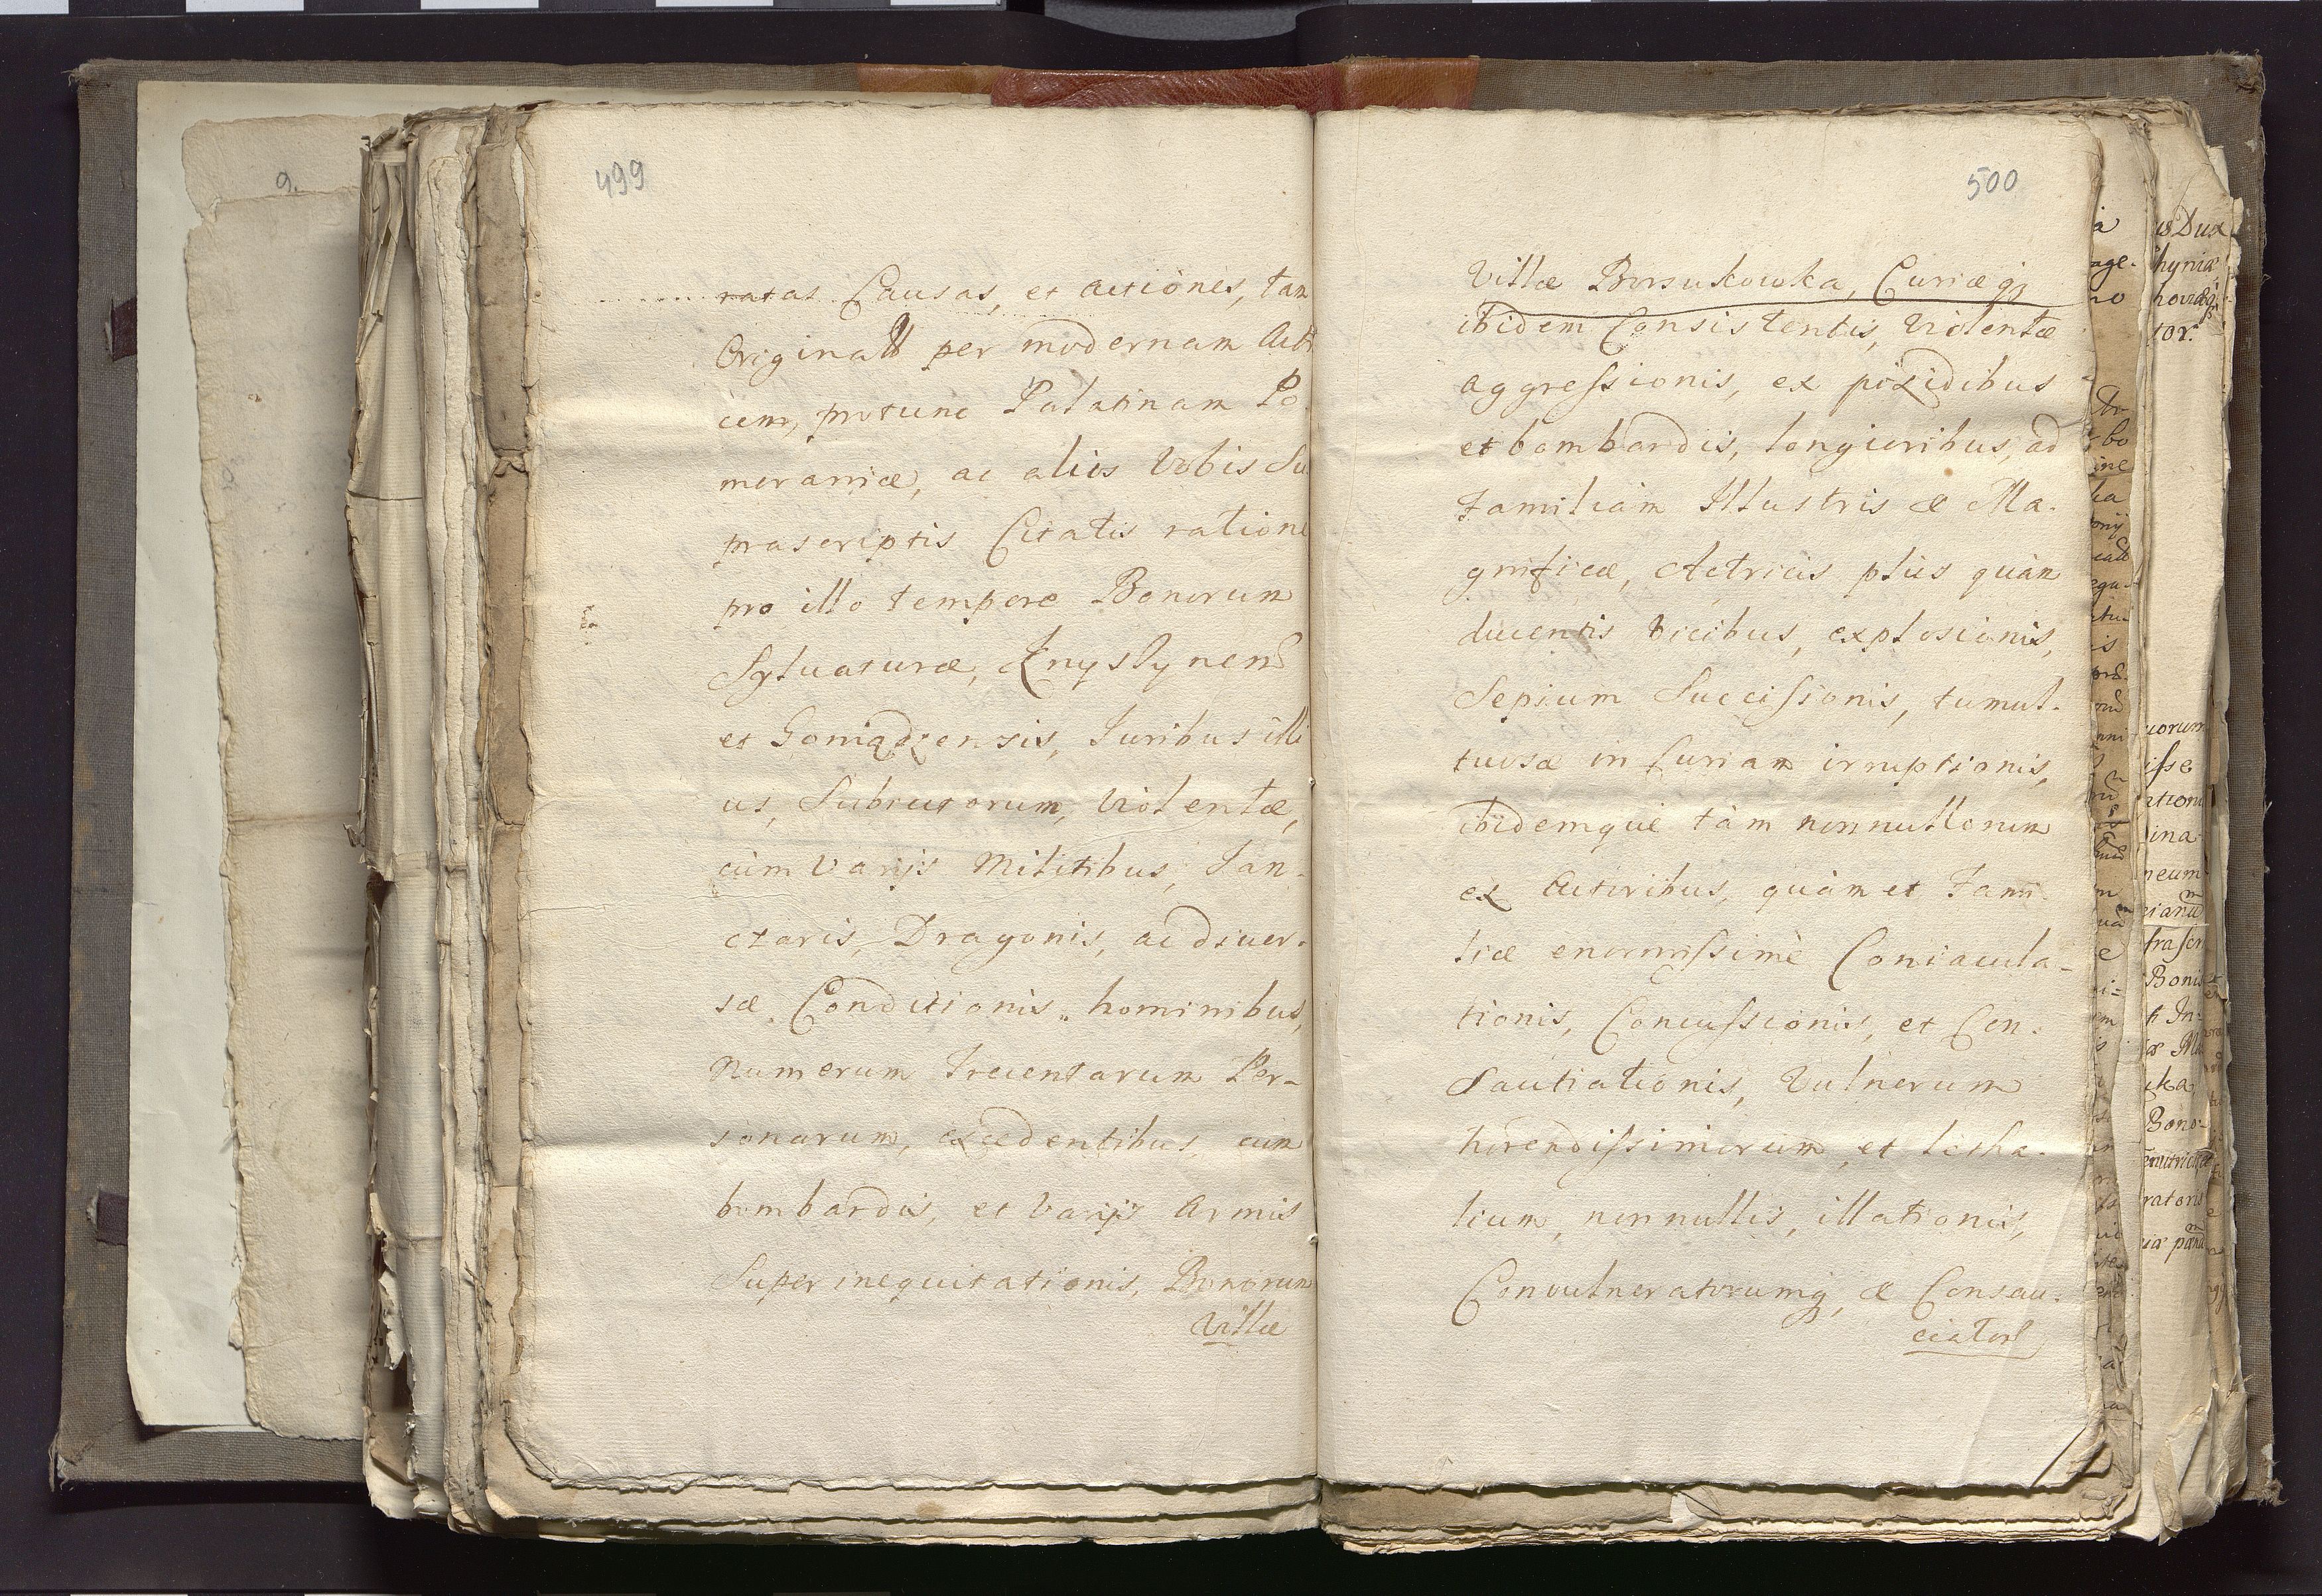 499
ratas Causas, et actiones, tam
Originall per modernam Actri
cem, protunc Palatinam Po
meraniæ, ac aliis Vobis Su
prascriptis Citatis ratione
pro illo tempore Bonorum
Sylvaturæ, Knyszynen
et Goniądzensis, Juribus illi
us, Subiectorum, Violentæ,
cum Varijs Militibus, Jan-
czaris, Dragonis, ac diver-
sæ Conditionis hominibus,
Numerum Trecentarum Per-
sonarum, excedentibus, cum
bombardis, et Varijs Armis
Super inequitationis, Bonorum
Villæ
500
Villæ Borsukowka, Curiæq;
ibidem Consistentis, Violentæ
aggressionis, ex pixidibus
et bombardis, longioribus, ad
Familiam Illustris & Ma-
gnificæ, Actricis plus quàm
ducentis vicibus, explosionis,
Sepium Succissionis, tumul-
tuosæ in Curiam irruptionis,
ibidemque tàm nonnullorum
ex Actoribus, quàm et Fami-
liæ enormissimè Coniacula-
tionis, Concussionis, et Con-
Sautiationis, Vulnerum
horendissimorum, et letha-
lium, nonnullis, illationis,
Convulneratorumq;, & Consau-
ciator